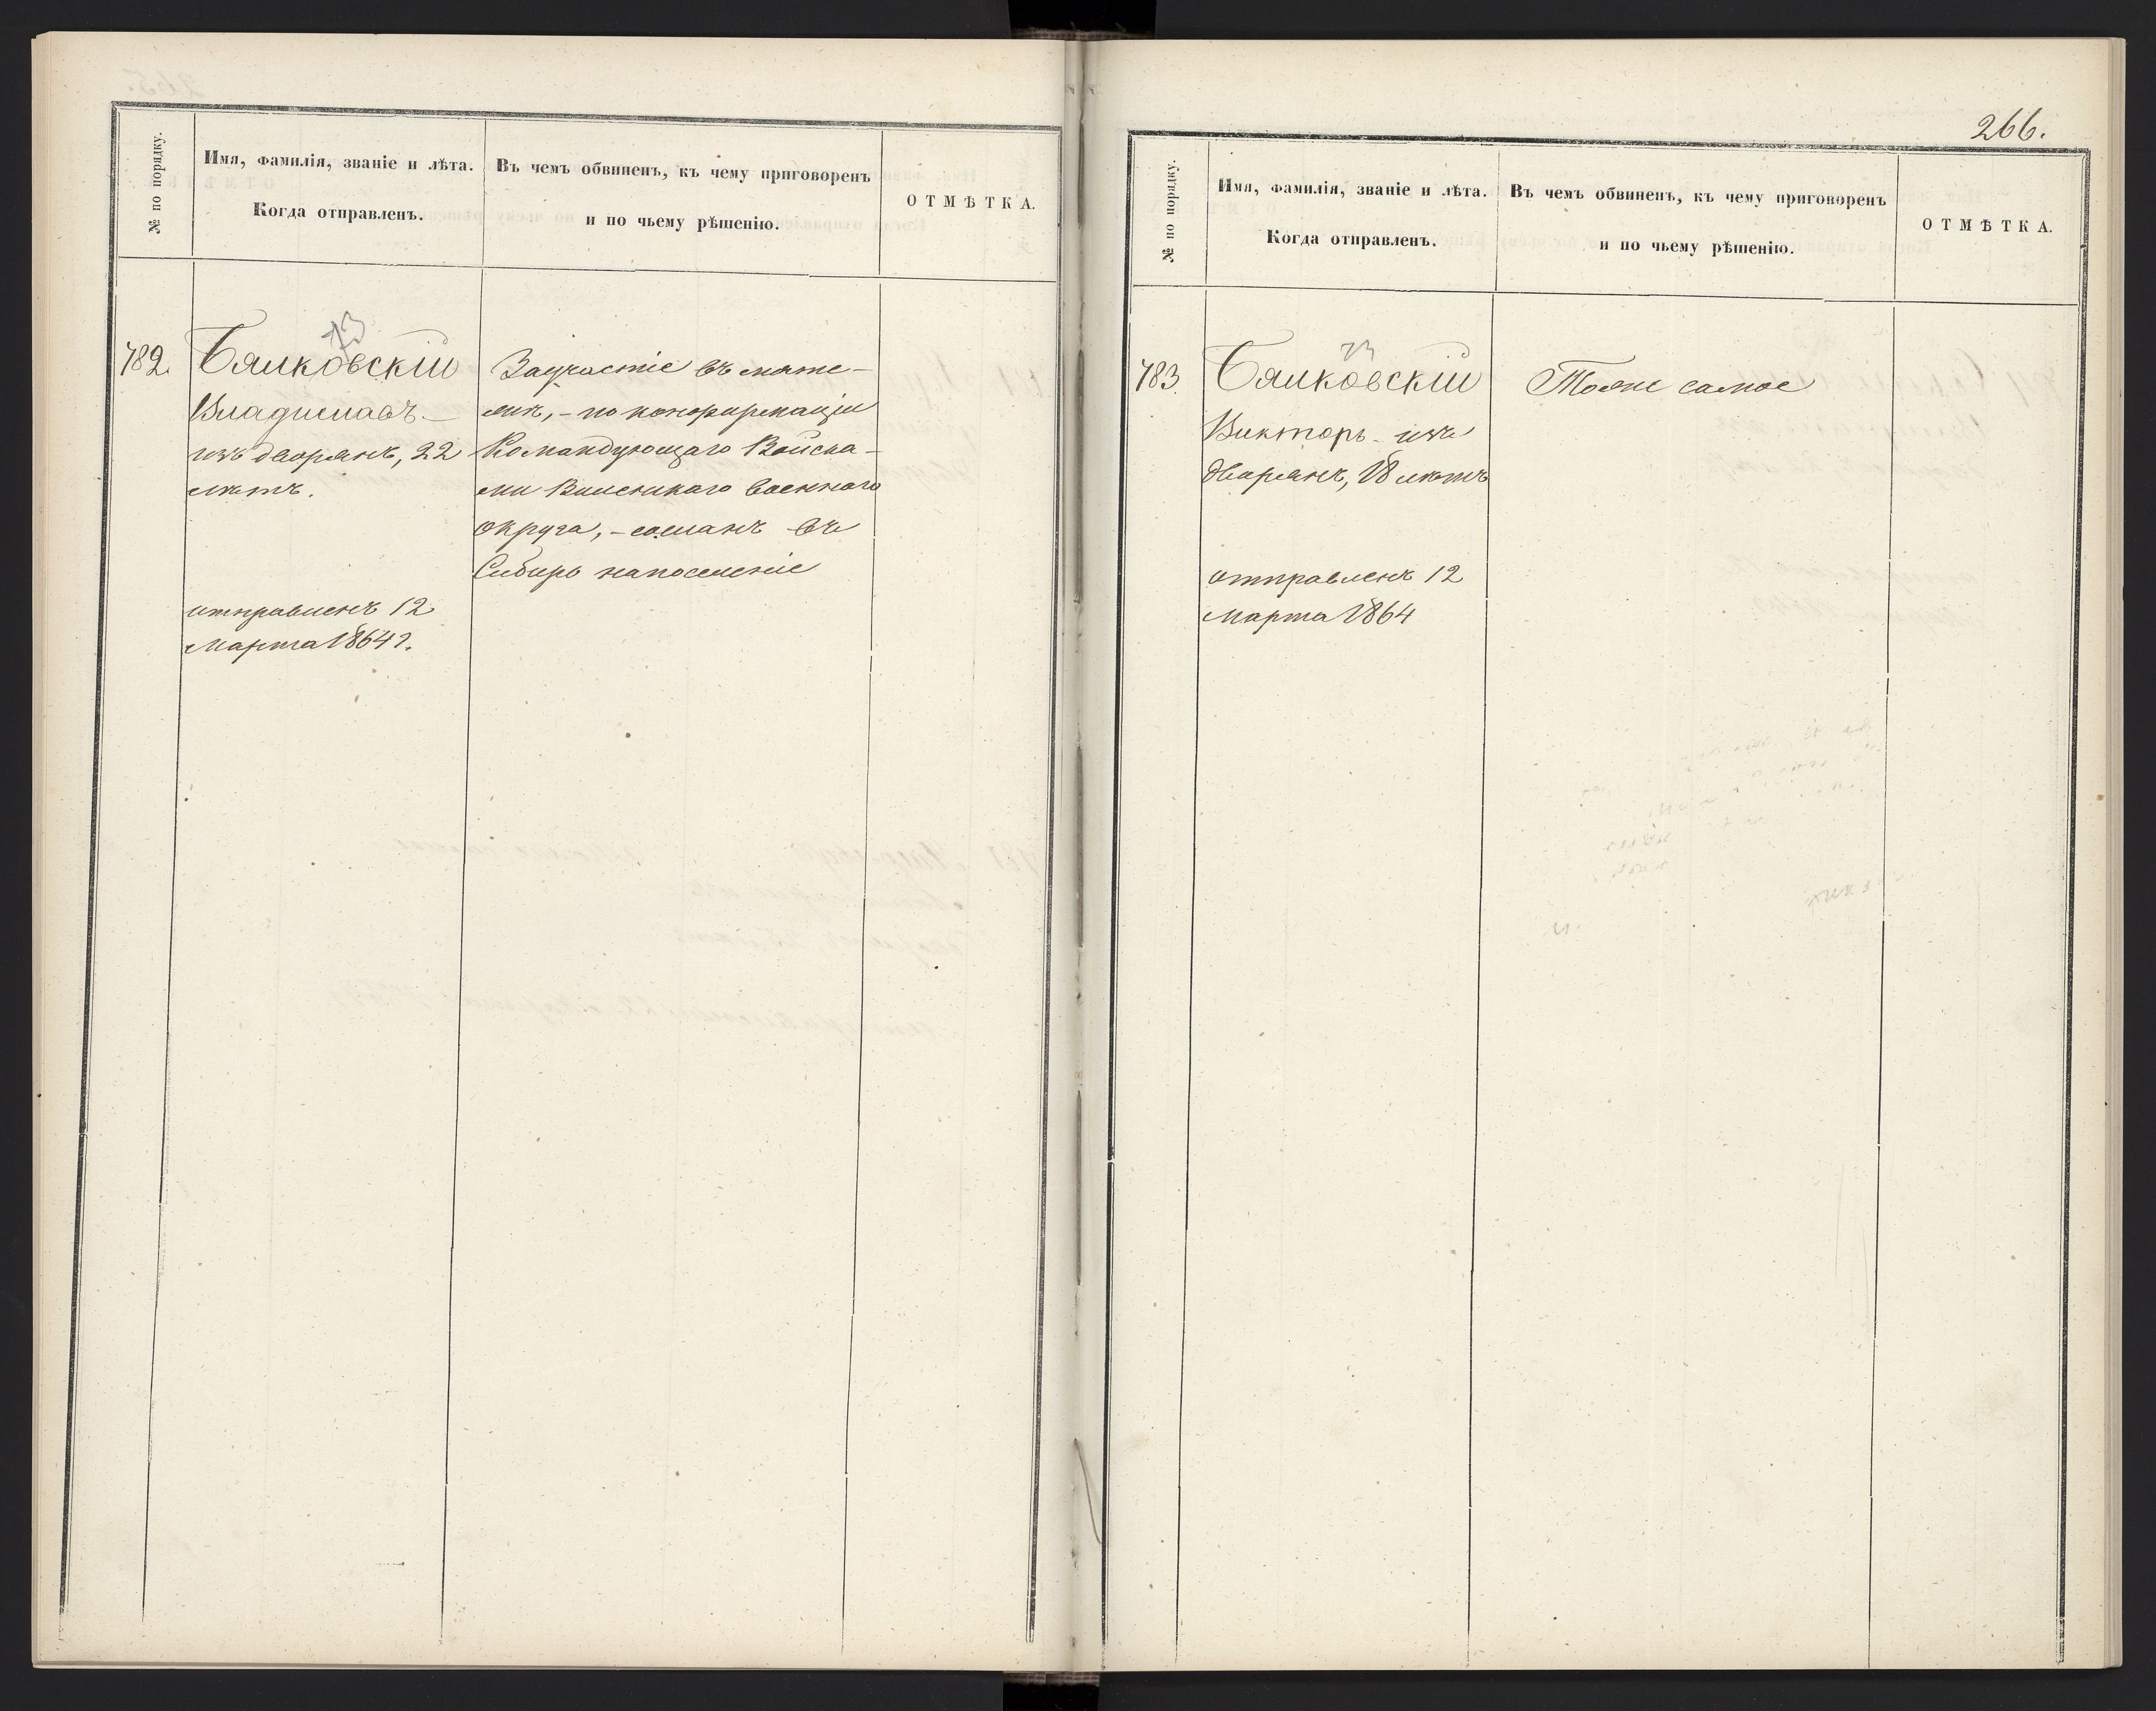 № по порядку.
Имя, фамилія, званіе и лѣта.
Когда отправленъ.
Въ чемъ обвиненъ, къ чему приговоренъ
и по чьему рѣшенію.
ОТМѢТКА.
782.
Бялковскій
Владиславъ
изъ дворянъ, 22
лѣтъ.
отправленъ 12
Марта 1864 г.
За участіе въ мяте-
жѣ, - по конфирмаціи
Командующаго Войска-
ми Виленскаго военнаго
округа, - сосланъ въ
Сибирь на поселеніе
266.
№ по порядку.
Имя, фамилія, званіе и лѣта.
Когда отправленъ.
Въ чемъ обвиненъ, къ чему приговоренъ
и по чьему рѣшенію.
ОТМѢТКА.
783
Бялковскій
Викторъ - изъ
дворянъ, 18 лѣтъ
отправленъ 12
Марта 1864
Тоже самое